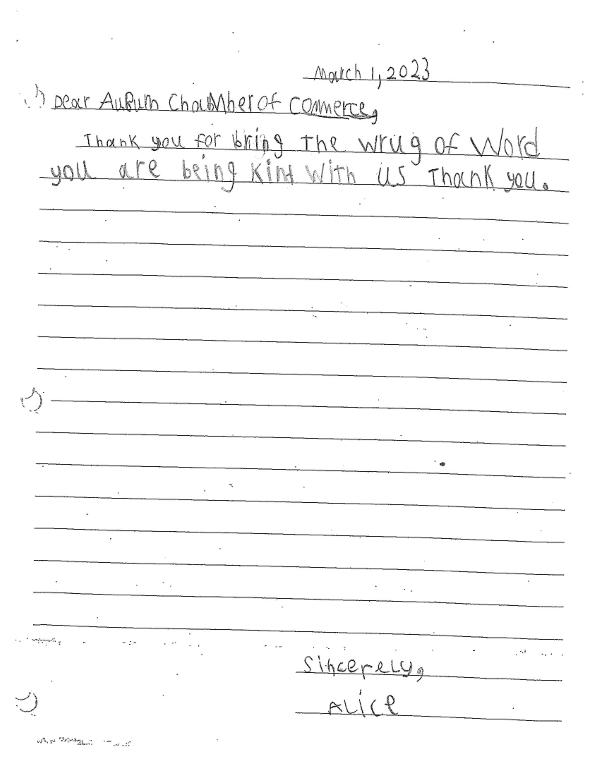 March 1, 2023
Dear Auburn Chaumber of Commerce,
Thank you for bring the wrug of Word
you are being kint with us Thank you.
Sincerely,
Alice